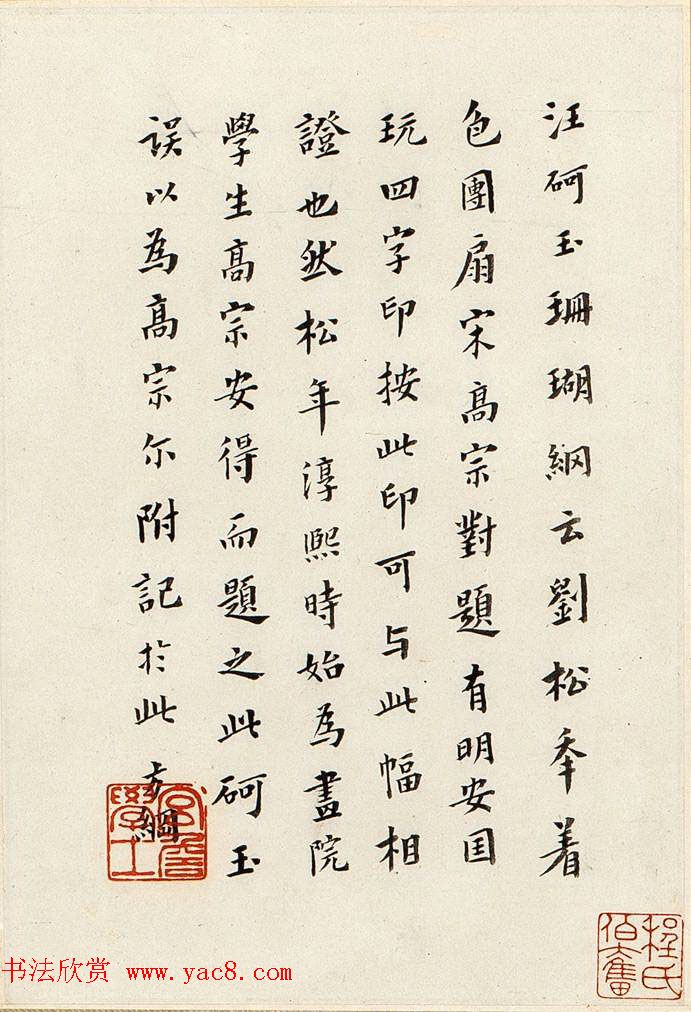 汪砢玉珊瑚網云劉松年着
色團扇宋高宗對題有明安国
玩四字印按此印可与此幅相
證也然松年淳熙時始為畫院
學生高宗安得而題之此砢玉
誤以為高宗尔附記於此 方綱
宮詹學士
程氏伯奮
书法欣赏 www.yac8.com